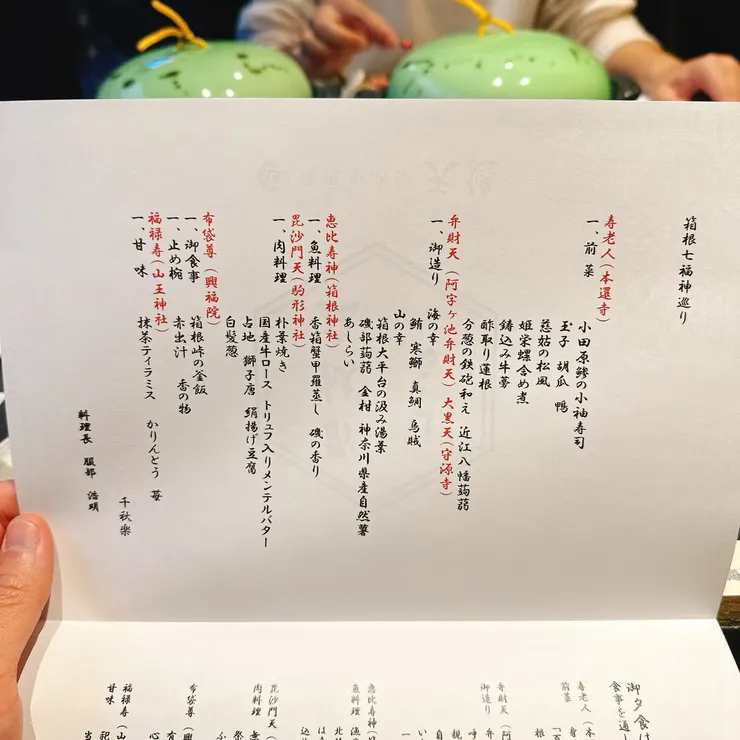 箱根七福神巡り
寿老人(本還寺)
一、前菜
小田原鯵の小袖寿司
玉子 胡瓜 鴨
慈姑の松風
姫栄螺含め煮
鋳込み牛蒡
酢取り蓮根
分葱の鉄砲和え 近江八幡蒟蒻
弁財天(阿字ヶ池弁財天)大黒天(守源寺)
一、御造り
海の幸
鮪 寒鰤 真鯛 烏賊
山の幸
箱根大平台の汲み湯葉
磯部蒟蒻 金村 神奈川県産自然薯
あしらい
恵比寿神(箱根神社)
一、魚料理 香箱蟹甲羅蒸し 磯の香り
毘沙門天(駒形神社)
一、肉料理
朴葉焼き
国産牛ロース トリュフ入りメンテルバター
占地 獅子唐 絹揚げ豆腐
白髪葱
布袋尊(興福院)
一、御食事 箱根峠の釜飯
一、止め椀 赤出汁 香の物
福禄寿(山王神社)
一、甘味 抹茶ティラミス かりんとう 苺
千秋楽
料理長 服部 浩明
御夕食は
食事を通し
寿老人(本
前菜
弁財天(阿
御造り
恵比寿神(箱
魚料理
毘沙門天(
肉料理
布袋尊(興
御食事
福禄寿(山
甘味